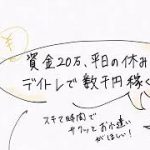 資金20万、平日の休み
デイトレで数千円稼ぐ
スキマ時間で
サクッとお小遣い
がほしい!